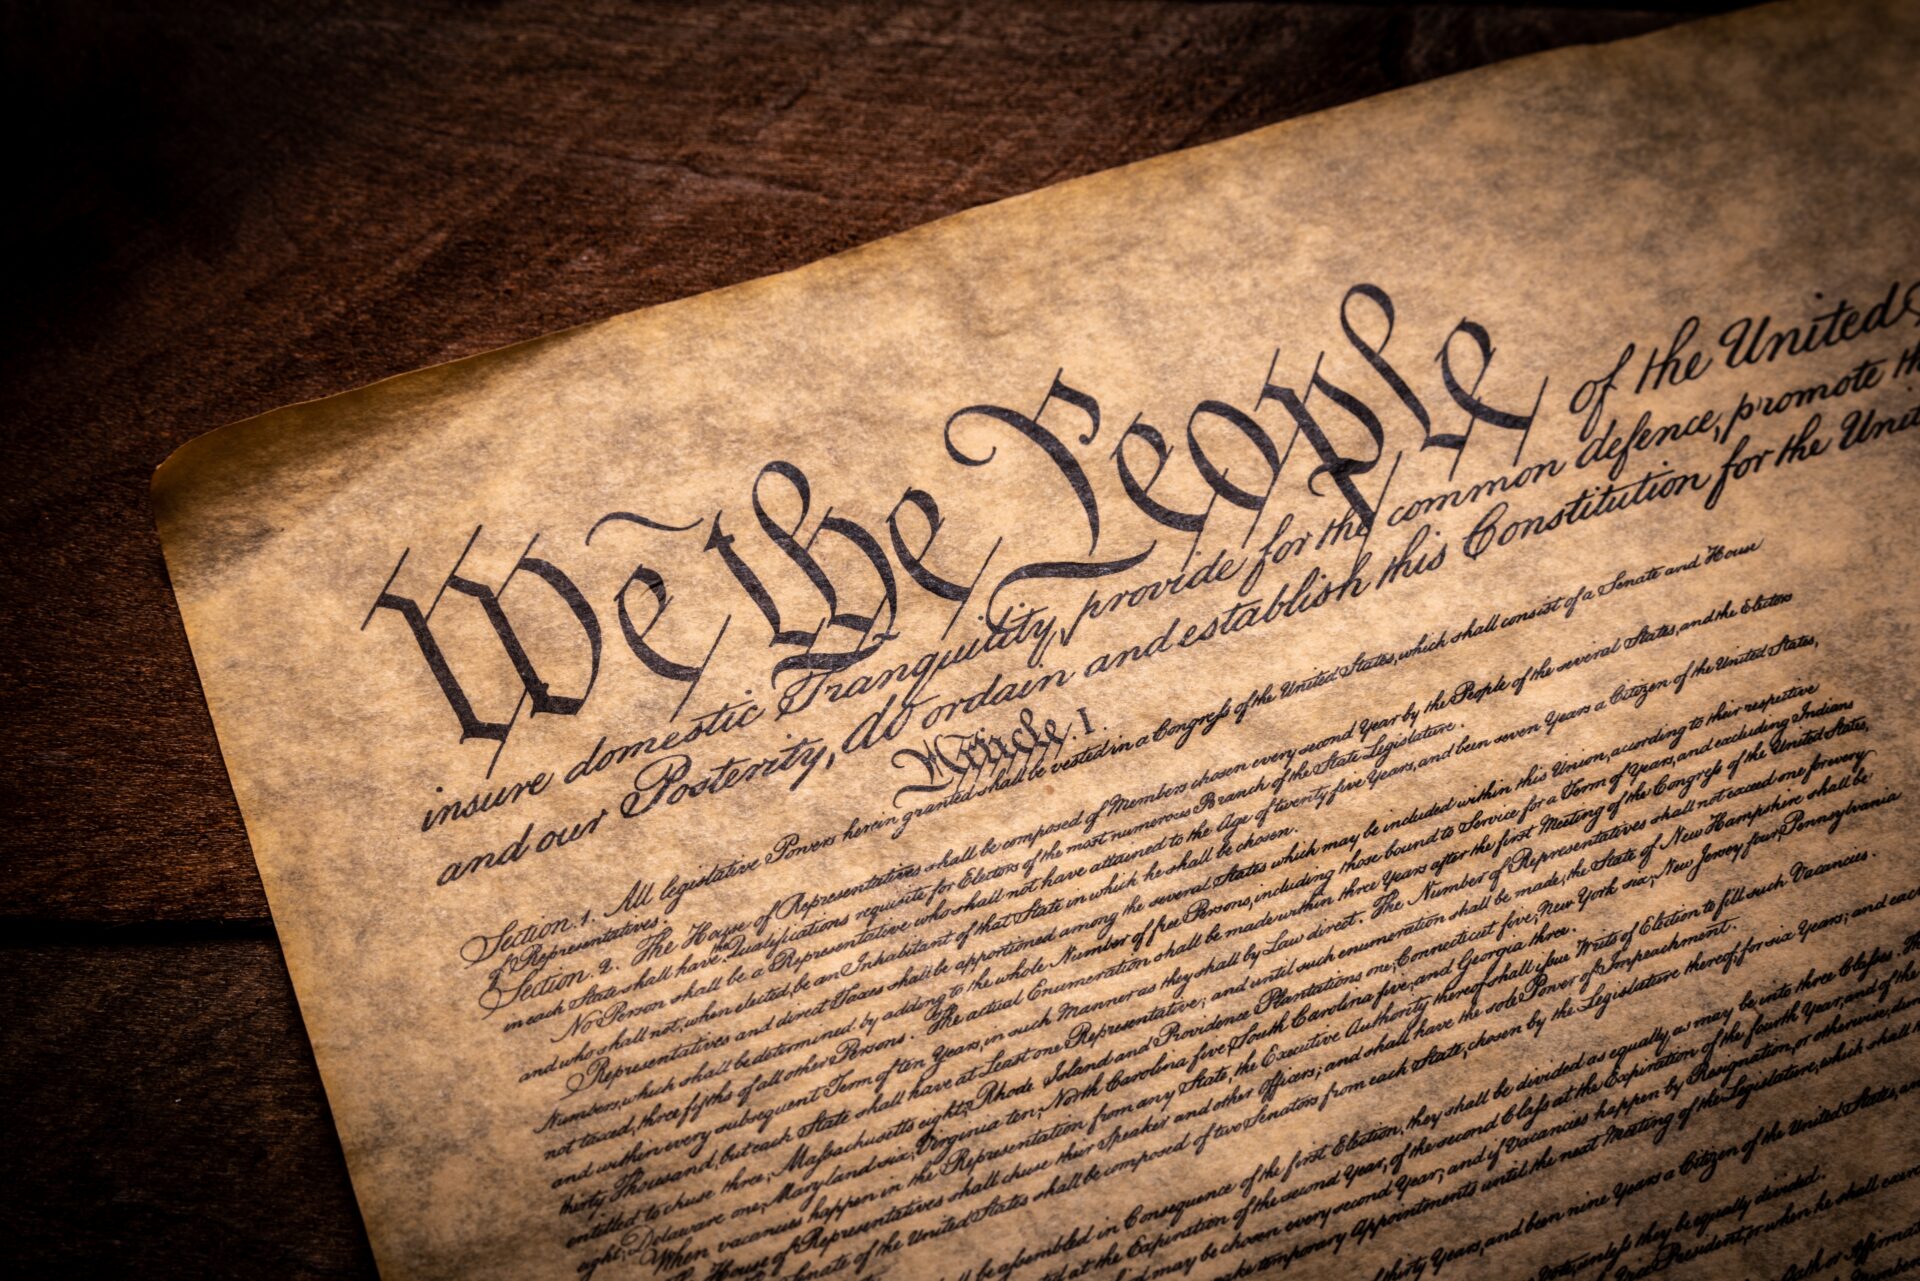 We the People of the United
insure domestic Tranquility, provide for the common defence, promote
and our Posterity, do ordain and establish this Constitution for the
Article. I.
Section. 1. All legislative Powers herein granted shall be vested in a Congress of the United States, which shall consist of a Senate and House
of Representatives.
Section. 2. The House of Representatives shall be composed of Members chosen every second Year by the People of the several States, and the Electors
in each State shall have the Qualifications requisite for Electors of the most numerous Branch of the State Legislature.
No Person shall be a Representative who shall not have attained to the Age of twenty five Years, and been seven Years a Citizen of the United States,
and who shall not, when elected, be an Inhabitant of that State in which he shall be chosen.
Representatives and direct Taxes shall be apportioned among the several States which may be included within this Union, according to their respective
Numbers, which shall be determined by adding to the whole Number of free Persons, including those bound to Service for a Term of Years, and excluding Indians
not taxed, three fifths of all other Persons. The actual Enumeration shall be made within three Years after the first Meeting of the Congress of the United States,
and within every subsequent Term of ten Years, in such Manner as they shall by Law direct. The Number of Representatives shall not exceed one for every
thirty Thousand, but each State shall have at Least one Representative; and until such enumeration shall be made, the State of New Hampshire shall be
entitled to chuse three, Massachusetts eight, Rhode Island and Providence Plantations one, Connecticut five, New York six, New Jersey four, Pennsylvania
eight, Delaware one, Maryland six, Virginia ten, North Carolina five, South Carolina five, and Georgia three.
When vacancies happen in the Representation from any State, the Executive Authority thereof shall issue Writs of Election to fill such Vacancies.
House of Representatives shall chuse their Speaker and other Officers; and shall have the sole Power of Impeachment.
Senate of the United States shall be composed of two Senators from each State, chosen by the Legislature thereof, for six Years; and each
be assembled in Consequence of the first Election, they shall be divided as equally as may be into three Classes.
at the Expiration of the second Year, of the second Class at the Expiration of the fourth Year, and of the
may be chosen every second Year; and if Vacancies happen by Resignation, or otherwise,
make temporary Appointments until the next Meeting of the Legislature, which shall
thirty Years, and been nine Years a Citizen of the United States,
unless they be equally divided.
President, or when he shall
Oath or Affirmation